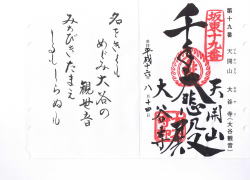 第十九番 天開山 大谷寺(大谷観音)
坂東十九番
天開山
千手大悲殿
大谷寺
平成十六年八月十四日
名をきくも
めぐみ大谷の
観世音
みちびきたまえ
しるもしらぬも